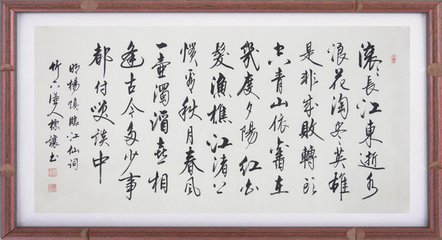 滚滚长江东逝水
浪花淘尽英雄
是非成败转头
空青山依旧在
几度夕阳红白
髮渔樵江渚上
惯看秋月春风
一壶浊酒喜相
逢古今多少事
都付笑谈中
明杨慎临江仙词